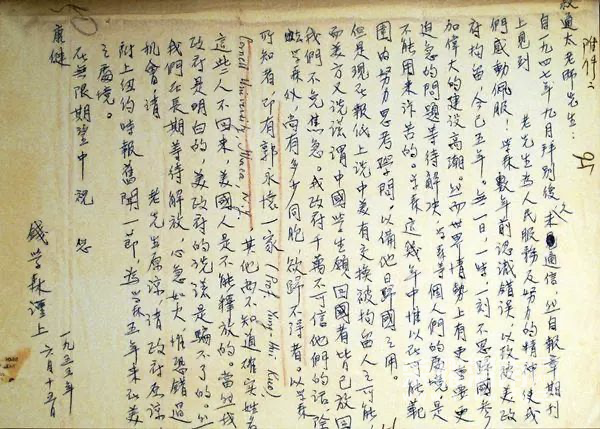 附件二
叔通太老師先生：
自一九四七年九月拜別後未通信，然自報章期刊
上見到 老先生為人民服務及努力的精神，使我
們感動佩服！學森數年前認識錯誤，以致被美政
府拘留，今已五年。無一日、一時、一刻不思歸國參
加偉大的建設高潮。然而世界情勢上有更重要更
迫急的問題等待解決，學森等個人們的處境，是
不能用來訴苦的。學森這幾年中惟以在可能範
圍內努力思考學問，以備他日歸國之用。
但是現在報紙上說中美有交換被拘留人之可能，
而美方又說謊謂中國學生願回國者皆已放回，
我們不免焦急。我政府千萬不可信他們的話，除
學森外，尚有多少同胞欲歸不得者。以學森
所知者，即有郭永懷一家（Prof. Yung-Huai Kuo,
Cornell University, Ithaca, N.Y.）其他尚不知道確實姓名
這些人不回來，美國人是不能釋放的。當然我
政府是明白的，美政府的說謊是騙不了的。然
我們在長期等待解放，心急如火，惟恐錯過
機會，請 老先生原諒，請政府原諒
附上紐約時報舊聞一節，為學森五年來在美
之處境。
在無限期望中祝 您
康健
錢學森謹上
一九五五年
六月十五日